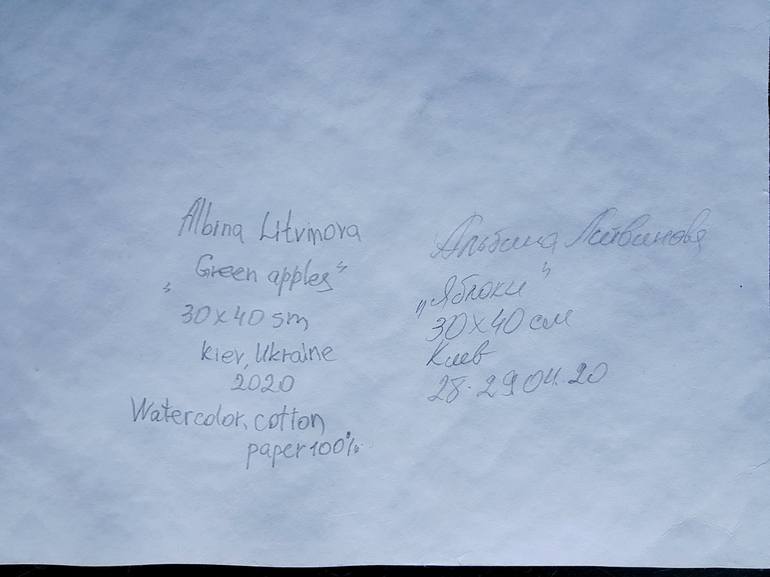 Albina Litvinova
„Green apples“
30x40 sm
Kiev, Ukraine
2020
Watercolor, cotton
paper 100%
Альбина Литвинова
„Яблоки“
30x40 см
Киев
28-29.04.20